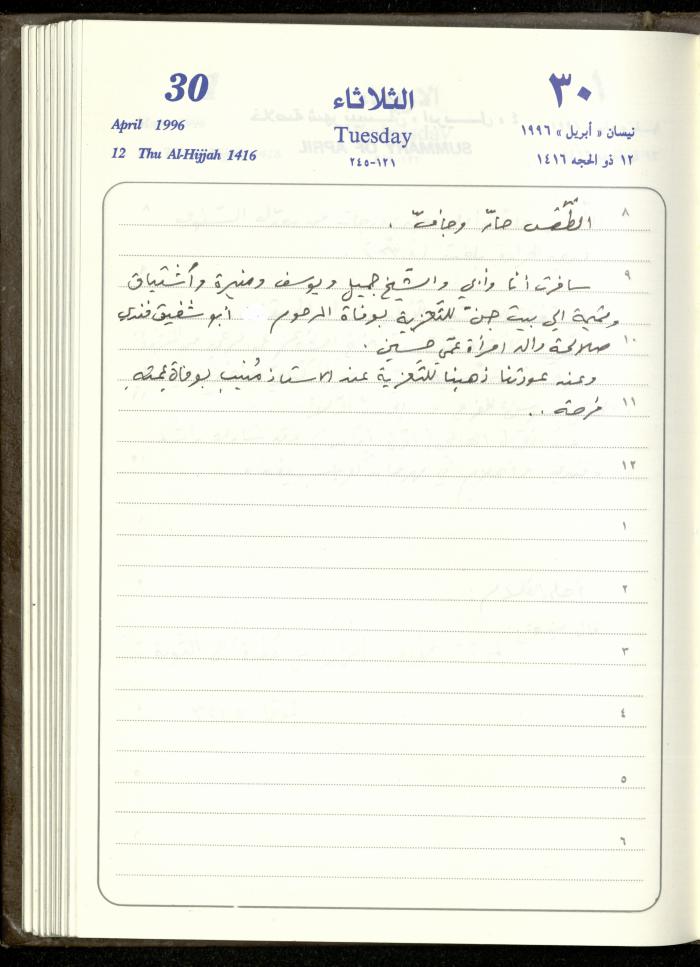 30
April 1996
12 Thu Al-Hijjah 1416
الثلاثاء
Tuesday
٢٤٥-١٢١
٣٠
نيسان « أبريل » ١٩٩٦
١٢ ذو الحجه ١٤١٦
٨ الطّقس حارّ وجافّ .
٩ سافرت أنا وأبي والشّيخ جميل ويوسف ومنيرة وأشتياق
الى بيت جنّ للتّعزية بوفاة المرحوم أبو شفيق فندي
١٠ صلالحة والد امرأة عمّي حسين .
وعند عودتنا ذهبنا للتّعزية عند الاستاذ مُنيب بوفاة عمته
١١ فرحة ..
١٢
١
٢
٣
٤
٥
٦